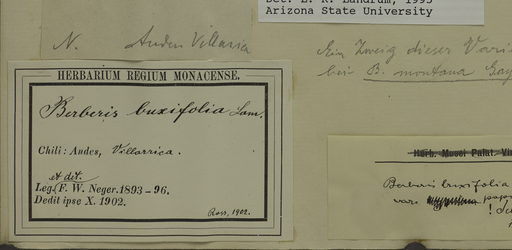 Det. L. R. Landrum, 1993
Arizona State University
N. Anden Villarica
Ein Zweig dieser Vari
bei B. montana Gay
HERBARIUM REGIUM MONACENSE.
Berberis buxifolia Lam.
Chili: Andes, Villarrica.
et dit.
Leg. F. W. Neger. 1893-96.
Dedit ipse X. 1902.
Ross, 1902.
Herb. Musei Palat. Vin
Berberis buxifolia
var.